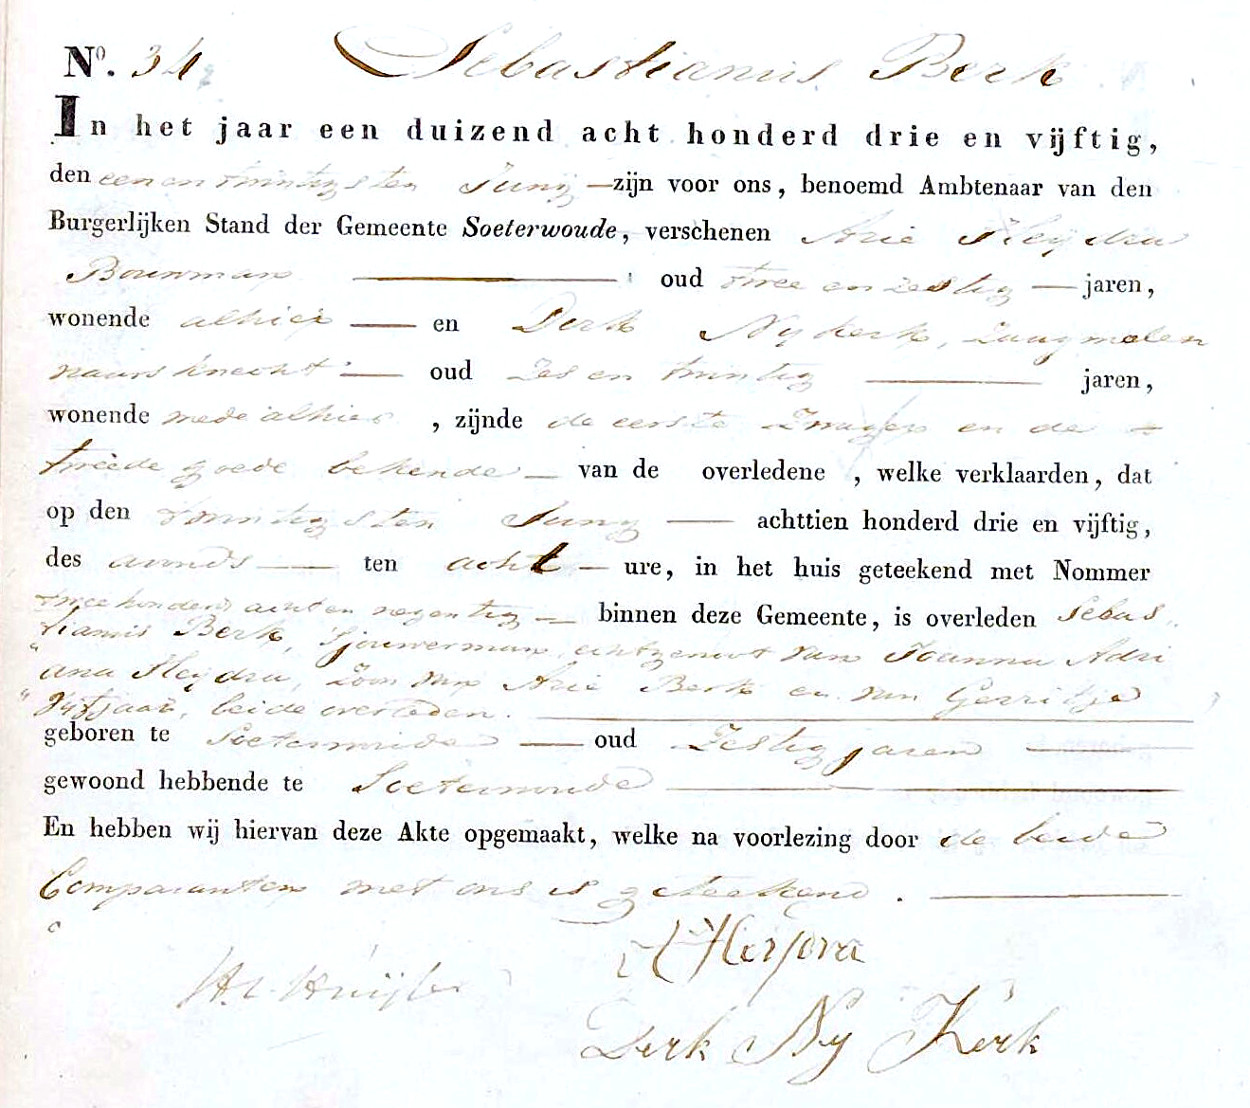 No. 34 Sebastianus Berk
In het jaar een duizend acht honderd drie en vijftig,
den een en twintigsten Junij zijn voor ons, benoemd Ambtenaar van den
Burgerlijken Stand der Gemeente Soeterwoude, verschenen Arie Heijdra
Bouwman oud twee en zestig jaren,
wonende alhier en Derk Nykerk, Zaagmolen
naarsknecht oud Zes en twintig jaren,
wonende mede alhier, zijnde de eerste Zwager en de
tweede goede bekende van de overledene, welke verklaarden, dat
op den twintigsten Junij achttien honderd drie en vijftig,
des avonds ten acht ure, in het huis geteekend met Nommer
twee honderd acht en negentig binnen deze Gemeente, is overleden Sebas
tianus Berk, Sjouwerman, echtgenoot van Joanna Adri
ana Heijdra, Zoon van Arie Berk en van Gerritje
Vijfjaar, beide overleden.
geboren te Soeterwoude oud Zestig jaren
gewoond hebbende te Soeterwoude
En hebben wij hiervan deze Akte opgemaakt, welke na voorlezing door de beide
Comparanten met ons is geteekend.
Derk Ny Kerk